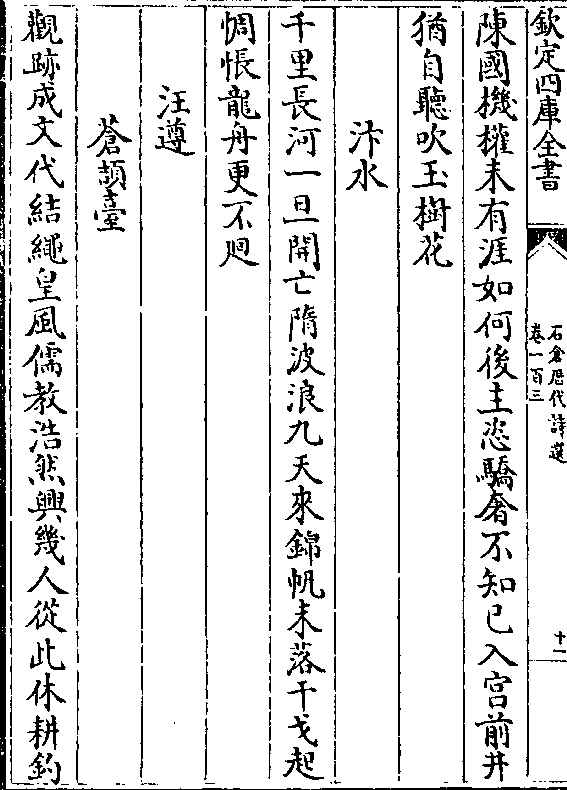 欽定四庫全書
石倉歷代詩選
卷一百三
十一
陳國機權未有涯如何後主恣驕奢不知已入宫前井
猶自聽吹玉樹花
汴水
千里長河一旦開亡隋波浪九天來錦帆未落干戈起
惆悵龍舟更不𢌞
汪遵
蒼頡臺
觀跡成文代結繩皇風儒教浩然興幾人從此休耕釣